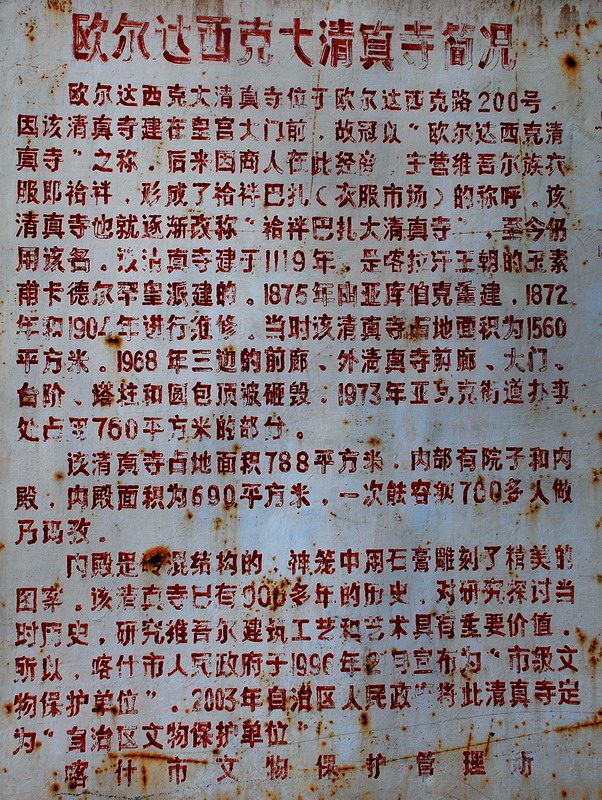 欧尔达西克大清真寺简况
欧尔达西克大清真寺位于欧尔达西克路200号．
因该清真寺建在皇宫大门前．故冠以“欧尔达西克清
真寺”之称．后来因商人在此经商．主营维吾尔族衣
服即袷袢．形成了袷袢巴扎（衣服市场）的称呼．该
清真寺也就逐渐改称“袷袢巴扎大清真寺”．至今仍
用该名．该清真寺建于1119年．是喀拉汗王朝的玉素
甫卡德尔罕皇派建的．1875年由亚库伯克重建．1872
年和1904年进行维修．当时该清真寺占地面积为1560
平方米．1968年三边的前廊、外清真寺前廊、大门、
台阶、塔柱和圆包顶被砸毁．1973年亚瓦克街道办事
处占用760平方米的部分。
该清真寺占地面积788平方米．内部有院子和内
殿．内殿面积为690平方米．一次能容纳700多人做
乃玛孜．
内殿是传混结构的．神笼中用石膏雕刻了精美的
图案．该清真寺已有900多年的历史．对研究探讨当
时历史．研究维吾尔建筑工艺和艺术具有重要价值．
所以．喀什市人民政府于1996年 宣布为“市级文
物保护单位”．2003年自治区人民政 将此清真寺定
为“自治区文物保护单位”
喀什市文物保护管理所